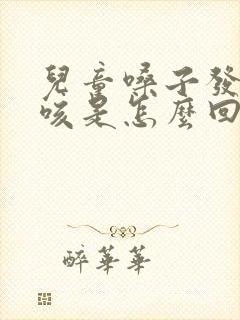 兒童嗓子發
咳是怎麼回
醉華華